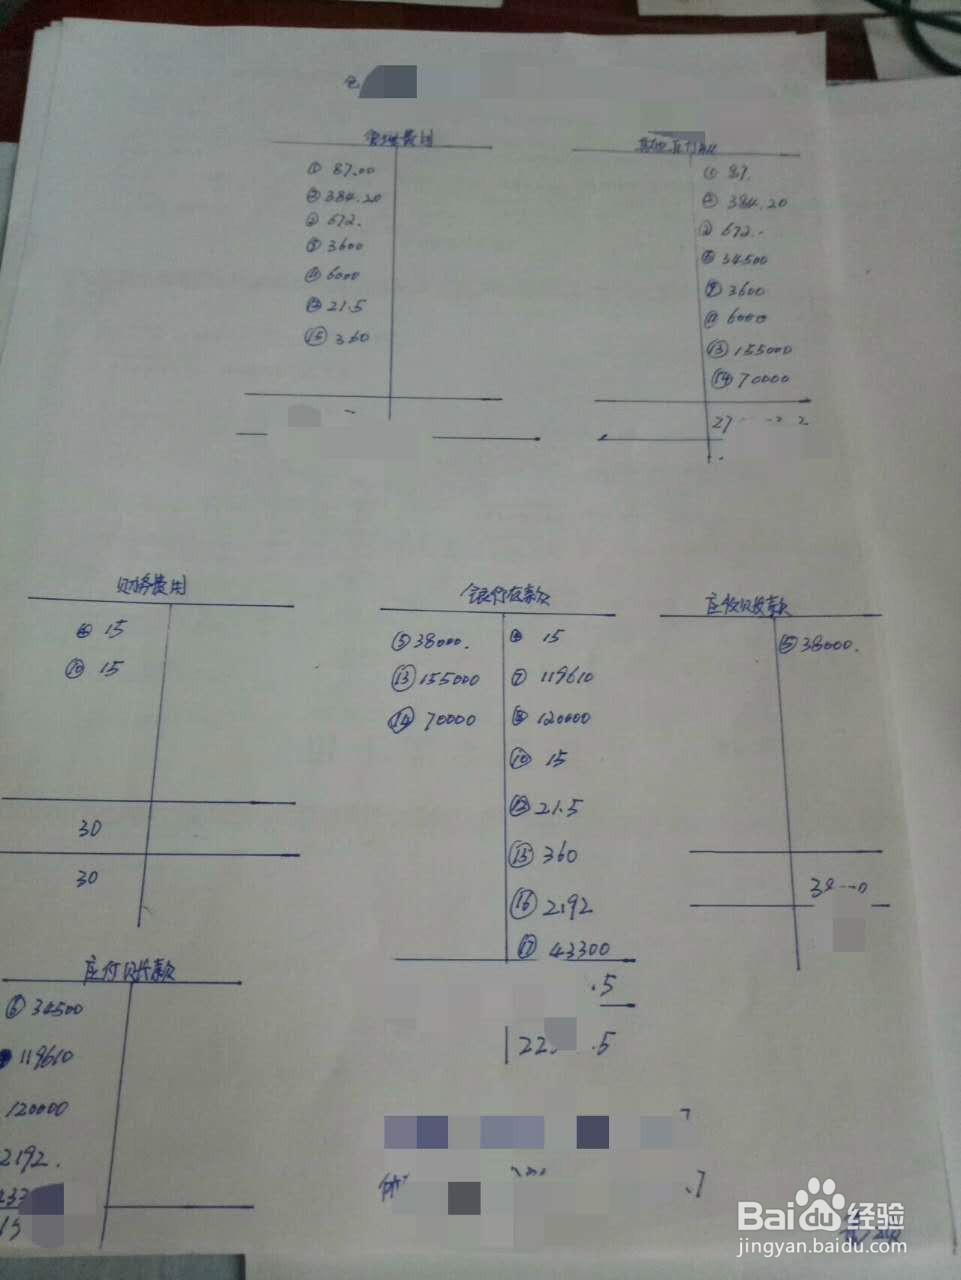 管理费用
① 87.00
② 384.20
② 672.
⑨ 3600
⑪ 6000
⑫ 21.5
⑮ 360
其他应付款
① 87.
② 384.20
② 672.-
⑥ 34500
⑨ 3600
⑪ 6000
⑬ 155000
⑭ 70000
财务费用
④ 15
⑩ 15
30
30
银行存款
⑤ 38000.
⑬ 155000
⑭ 70000
④ 15
⑦ 119610
⑧ 120000
⑩ 15
⑫ 21.5
⑮ 360
⑯ 2192
⑰ 43300
.5
.5
应收账款
⑤ 38000.
应付账款
⑥ 34500
119610
120000
2192.
Baidu 经验
jingyan.baidu.com